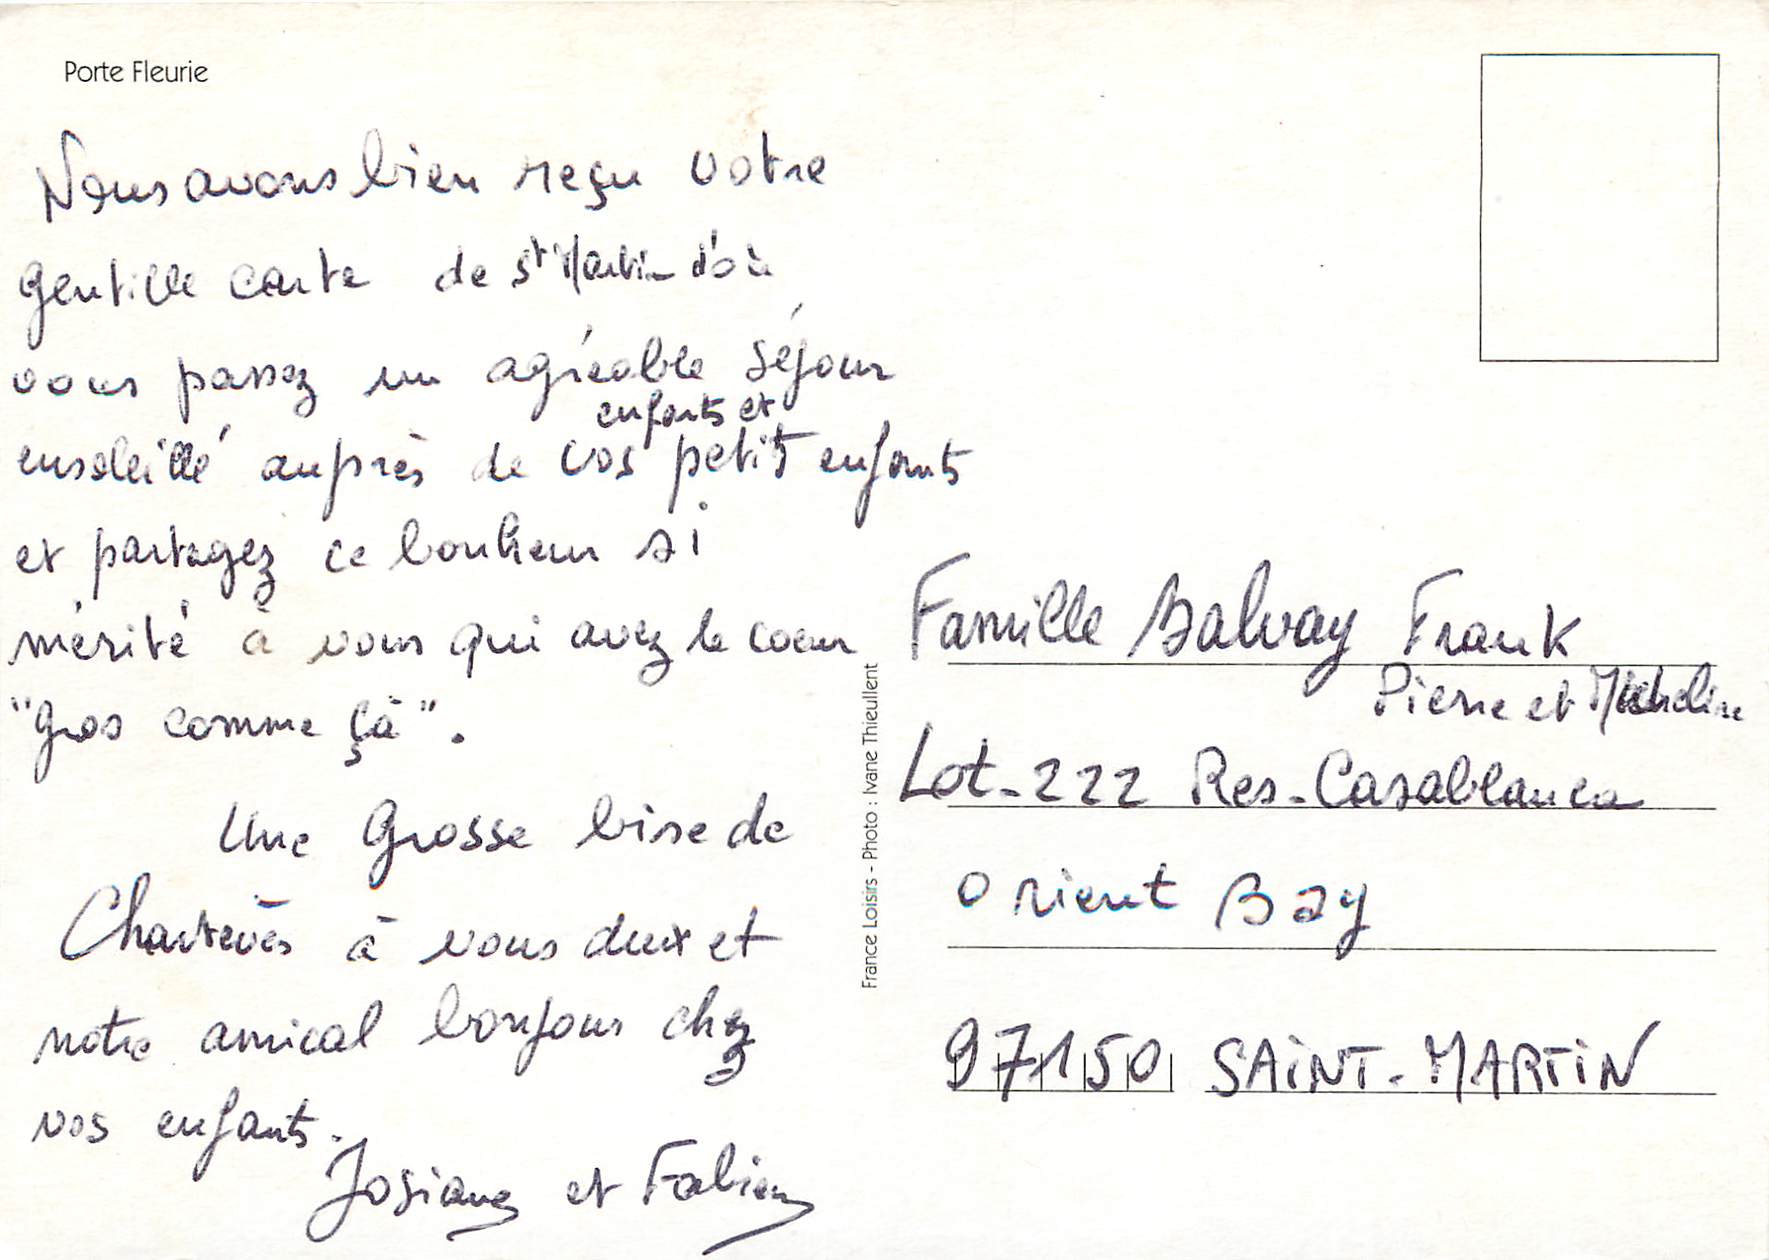 Porte Fleurie
Nous avons bien reçu votre
gentille carte de St Martin d'où
vous passez un agréable séjour
enfants et
ensoleillé auprès de vos petits enfants
et partagez ce bonheur si
mérité à vous qui avez le coeur
"gros comme çà".
Une Grosse bise de
Chartèves à vous deux et
notre amical bonjour chez
vos enfants.
Josiane et Fabien
France Loisirs - Photo : Ivane Thieullent
Famille Balvay Frank
Pierre et Micheline
Lot-222 Res-Casablanca
Orient Bay
97150 SAiNT-MARTiN